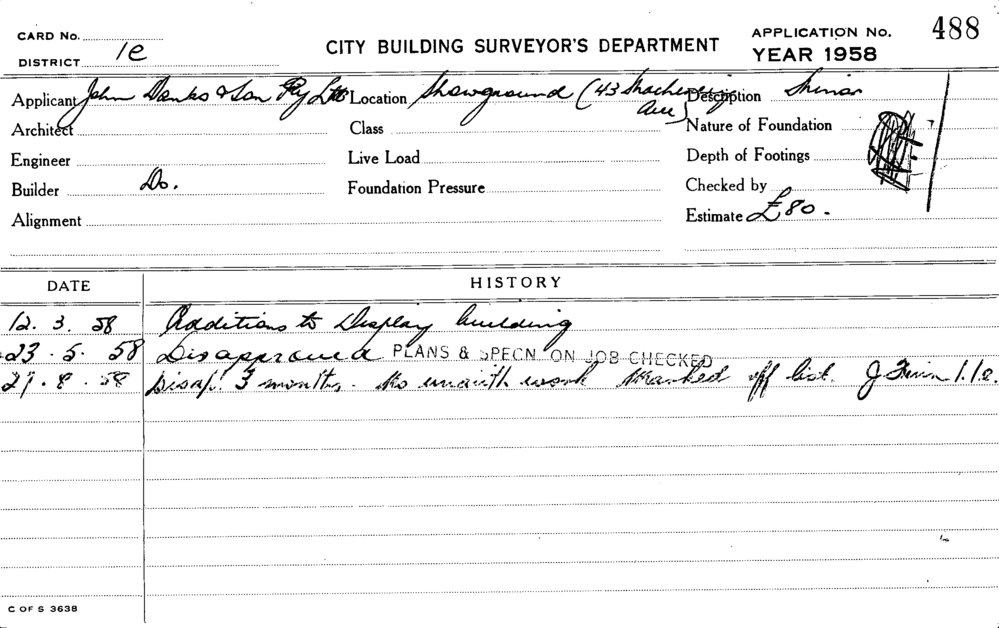 CARD No.
CITY BUILDING SURVEYOR'S DEPARTMENT
APPLICATION No. 488
YEAR 1958
DISTRICT 1e
Applicant John Danks & Son Pty Ltd Location Showground (43 Ave) Description Minor
Architect Class Nature of Foundation
Engineer Live Load Depth of Footings
Builder Do. Foundation Pressure Checked by
Alignment Estimate £80.
DATE HISTORY
12. 3. 58 Additions to Display building
23. 5. 58 Disapproved PLANS & SPECN. ON JOB CHECKED
27. 8. 58 Disap. 3 months. No unauth work Marked off list. J
C OF S 3638